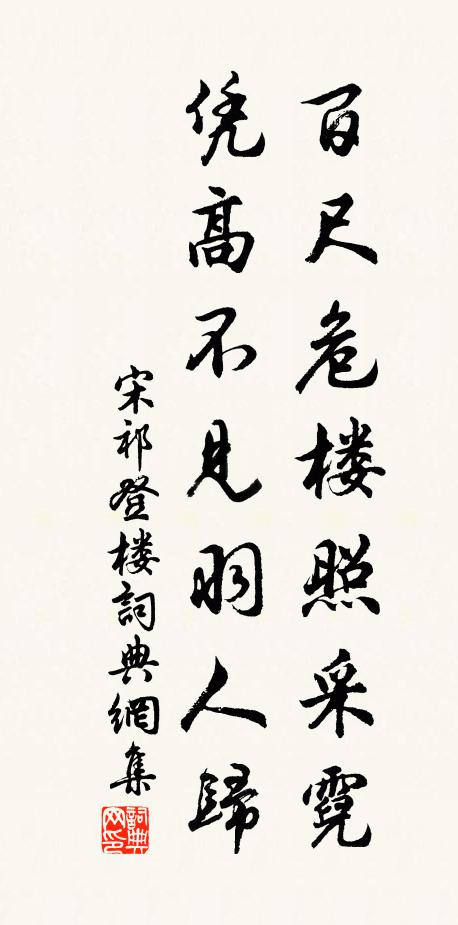 百尺危楼照采霓
凭高不見羽人歸
宋祁登楼詞典網集
詞典网印